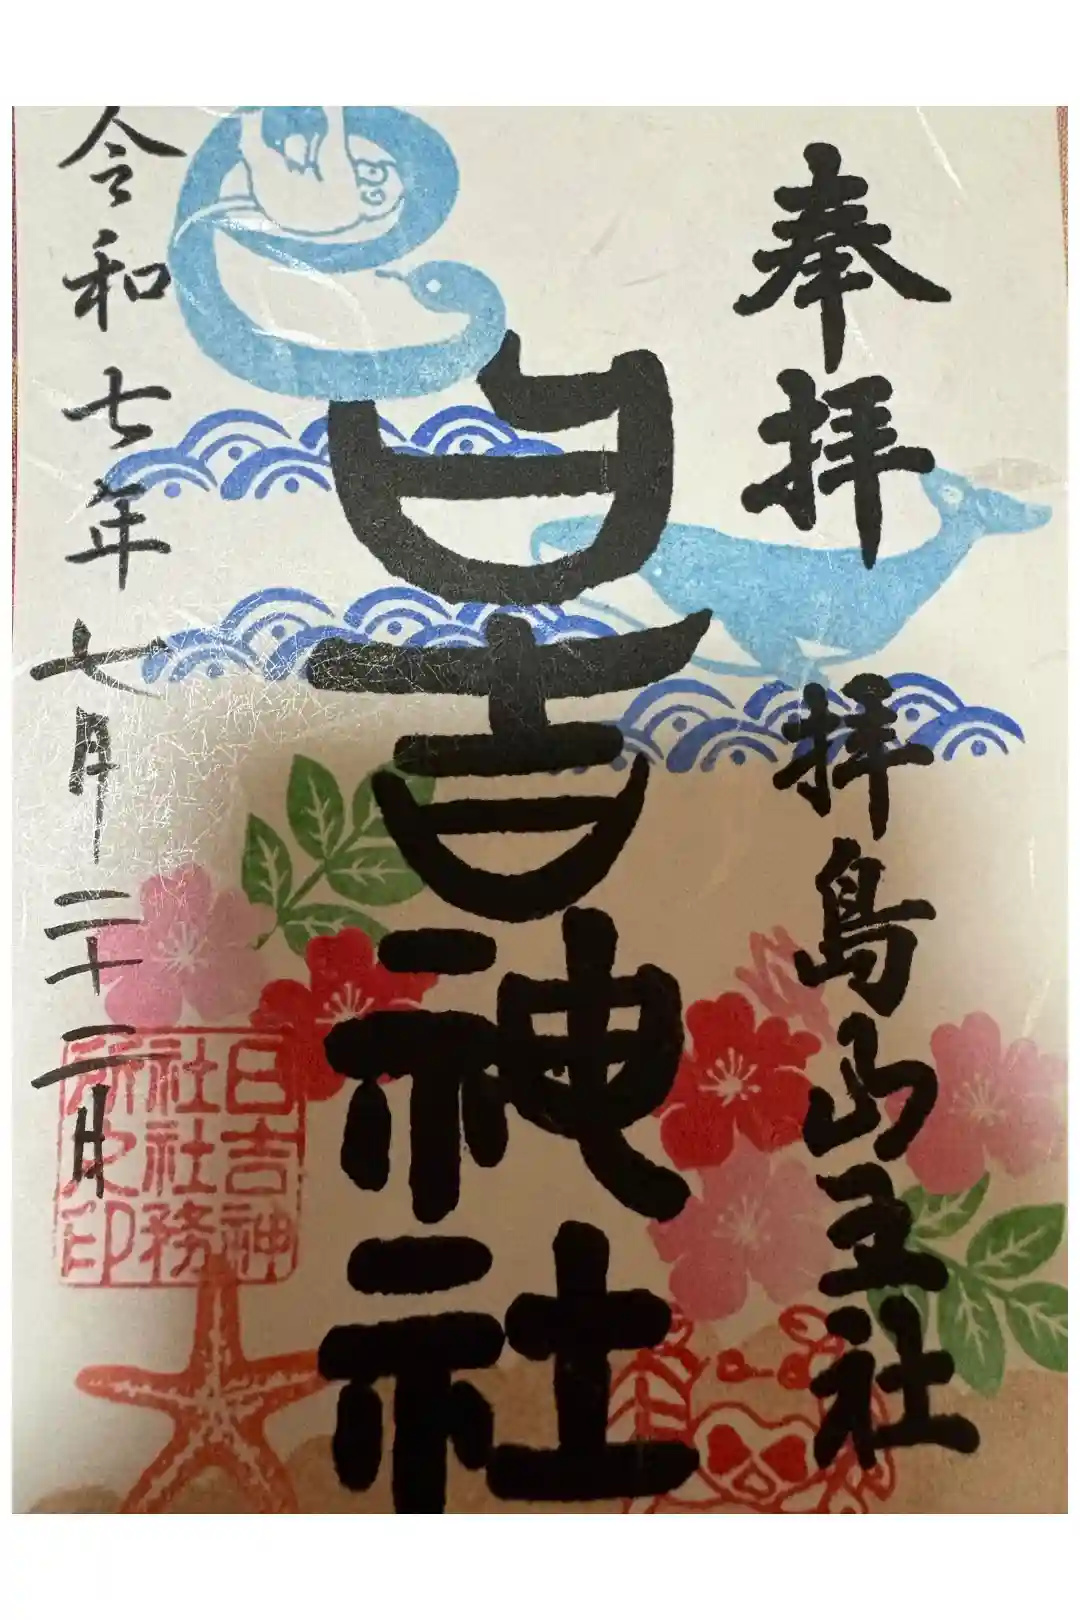 奉拝 拝島山王社
日吉神社
令和七年七月二十二日
日吉神
社社務
所之印